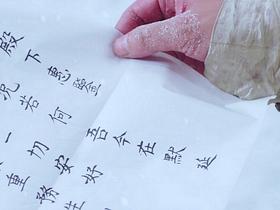 殿下惠鑒
況若何吾今在默延
一切安好
重務